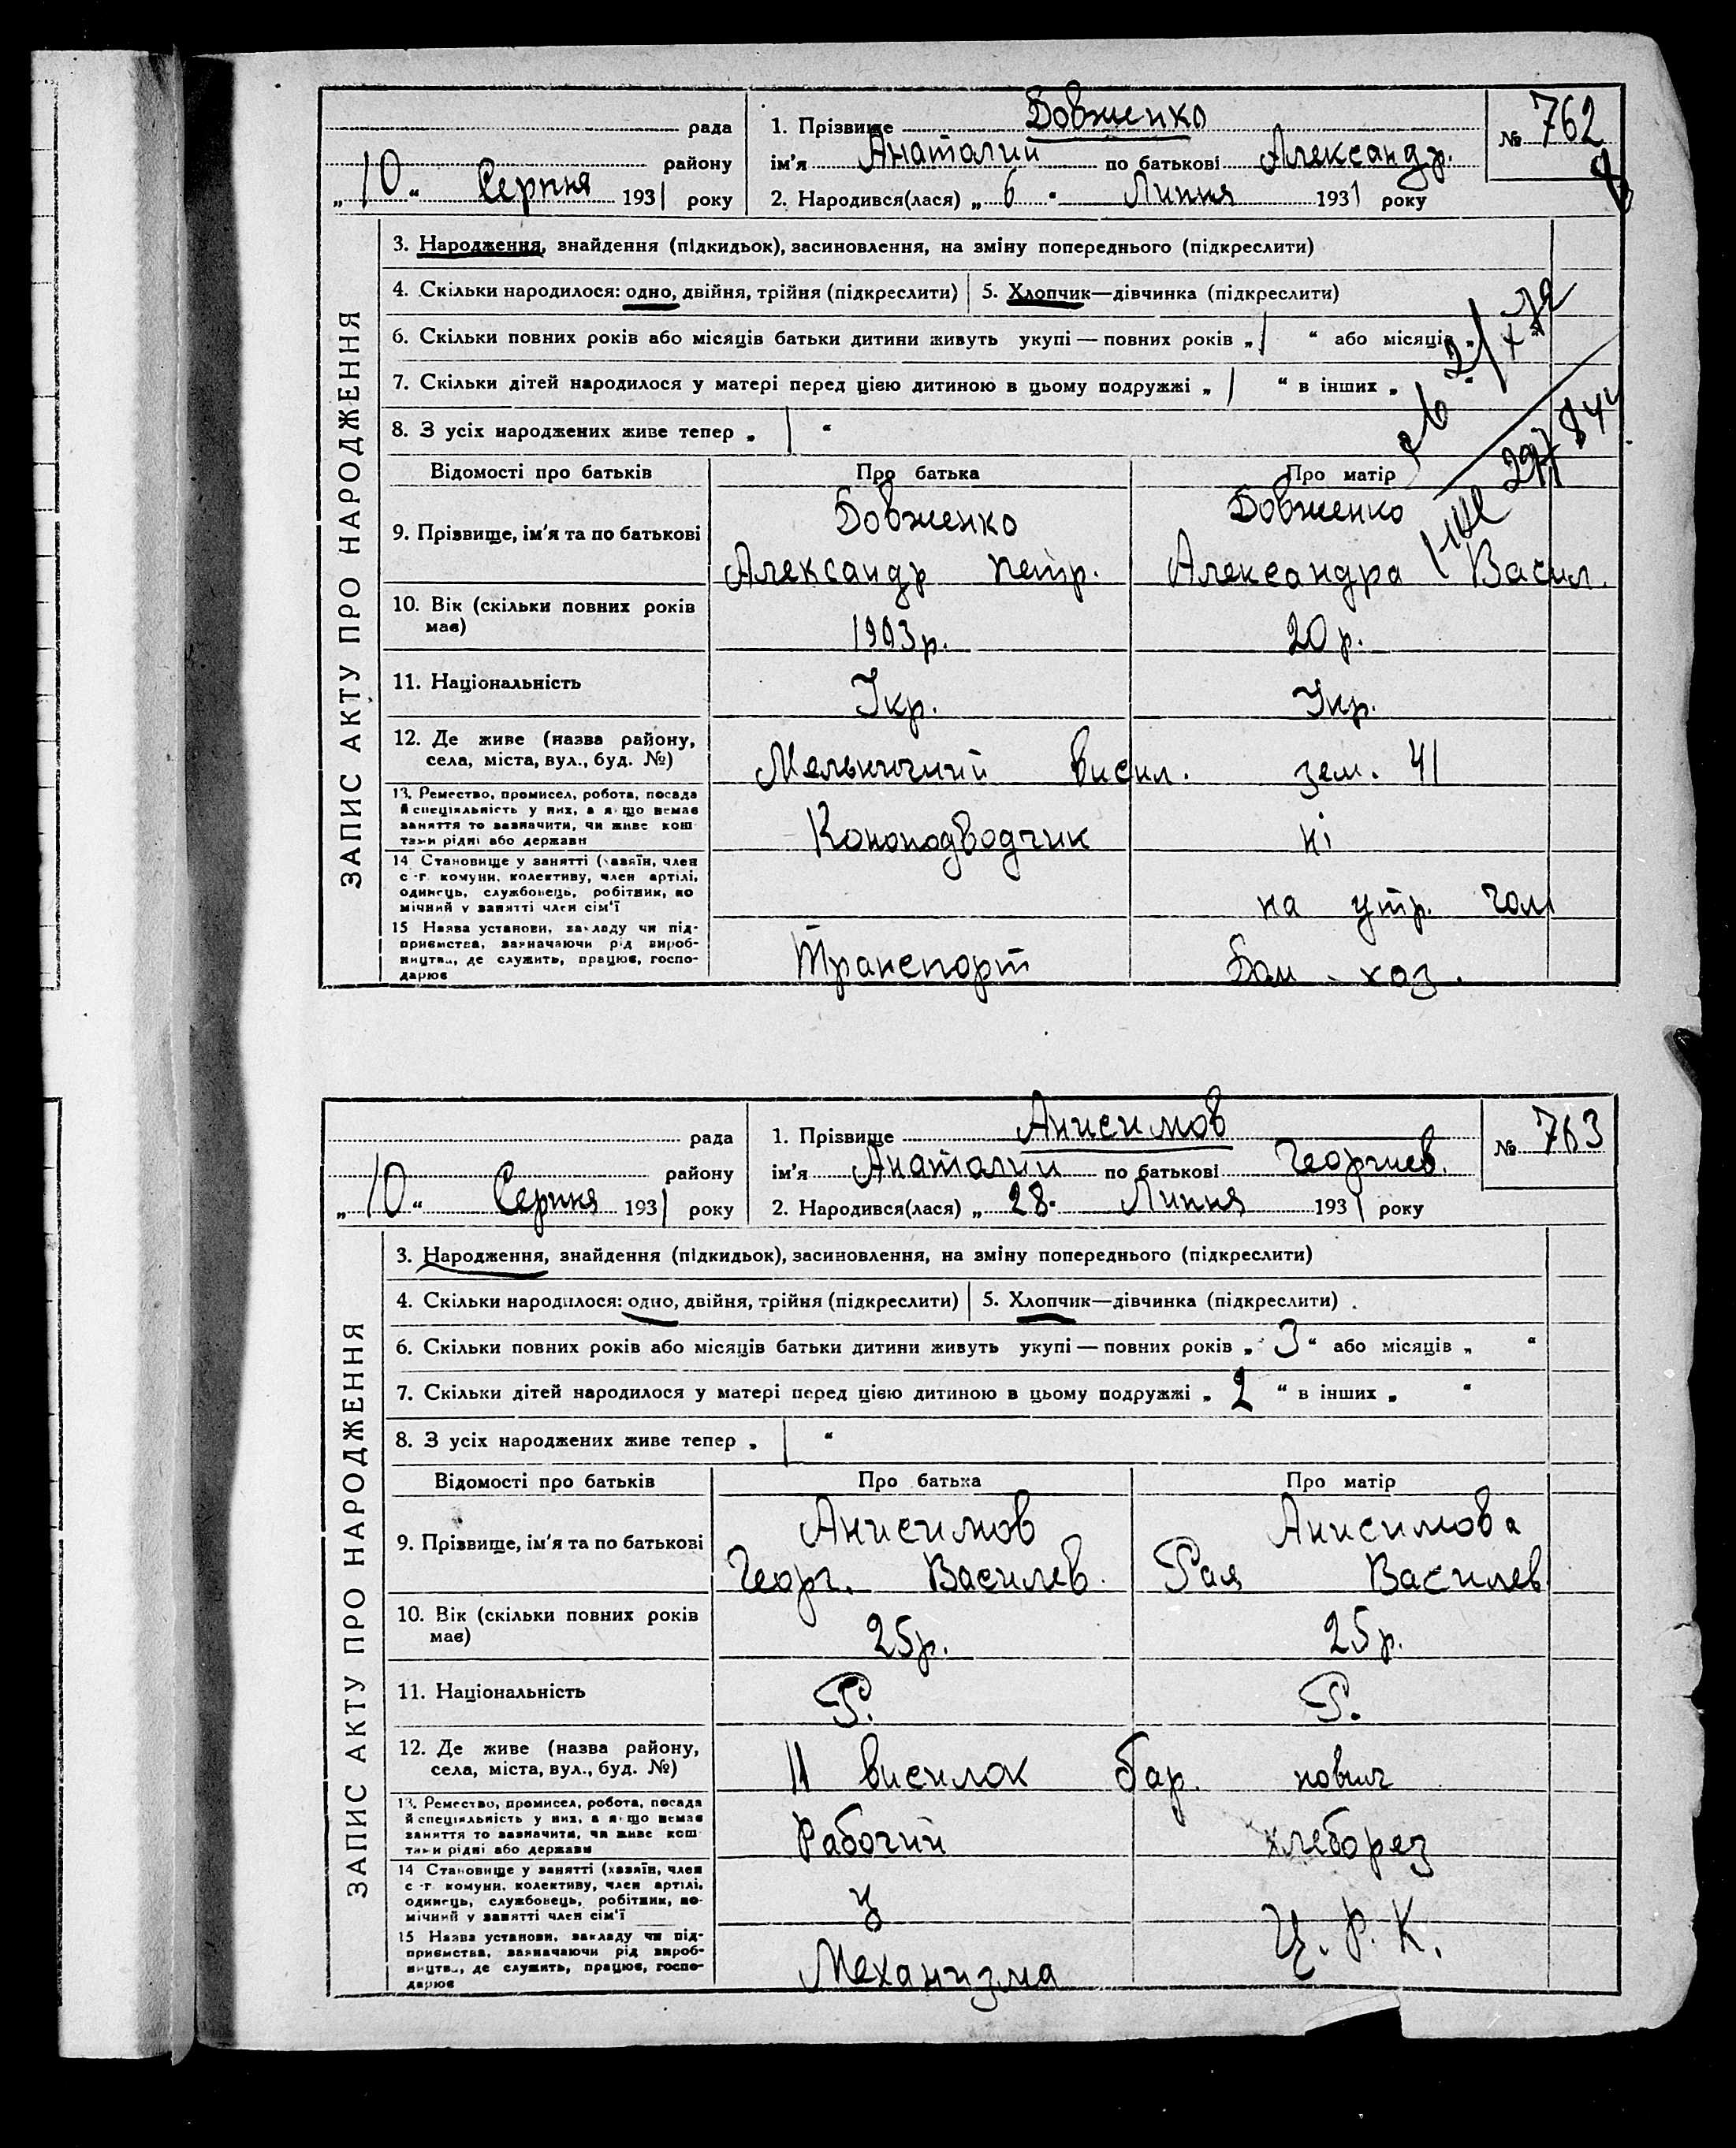 рада
району
„10“ Серпня 1931 року
1. Прізвище Бовженко
ім'я Анатолий по батькові Александр.
2. Народився(лася) „6“ Липня 1931 року
№ 762
ЗАПИС АКТУ ПРО НАРОДЖЕННЯ
3. Народження, знайдення (підкидьок), засиновлення, на зміну попереднього (підкреслити)
4. Скільки народилося: одно, двійня, трійня (підкреслити) 5. Хлопчик—дівчинка (підкреслити)
6. Скільки повних років або місяців батьки дитини живуть укупі — повних років „1“ або місяців „
7. Скільки дітей народилося у матері перед цією дитиною в цьому подружжі „1“ в інших „ “
8. З усіх народжених живе тепер „1“
Відомості про батьків Про батька Про матір
9. Прізвище, ім'я та по батькові Бовженко Бовженко
Александр Петр. Александра Васил.
10. Вік (скільки повних років
має) 1903р. 20 р.
11. Національність Укр. Укр.
12. Де живе (назва району,
села, міста, вул., буд. №) висил. зем. 41
13. Ремество, промисел, робота, посада
й спеціяльність у них, а якщо немає
заняття то зазначити, чи живе кош-
тами рідні або держави Коноподводчик ні
14 Становище у занятті (хазяїн, член
с.-г. комуни, колективу, член артілі,
одинець, службовець, робітник, по-
мічний у занятті член сім'ї на утр.
15 Назва установи, закладу чи під-
приємства, зазначаючи рід вироб-
ництва, де служить, працює, госпо-
дарює Транспорт хоз.
рада
району
„10“ Серпня 1931 року
1. Прізвище Анисимов
ім'я Анатолий по батькові Георгиев.
2. Народився(лася) „28“ Липня 1931 року
№ 763
ЗАПИС АКТУ ПРО НАРОДЖЕННЯ
3. Народження, знайдення (підкидьок), засиновлення, на зміну попереднього (підкреслити)
4. Скільки народилося: одно, двійня, трійня (підкреслити) 5. Хлопчик—дівчинка (підкреслити)
6. Скільки повних років або місяців батьки дитини живуть укупі — повних років „3“ або місяців „ “
7. Скільки дітей народилося у матері перед цією дитиною в цьому подружжі „2“ в інших „ “
8. З усіх народжених живе тепер „1“
Відомості про батьків Про батька Про матір
9. Прізвище, ім'я та по батькові Анисимов Анисимова
Георг. Василев. Рая Василев
10. Вік (скільки повних років
має) 25р. 25р.
11. Національність Р. Р.
12. Де живе (назва району,
села, міста, вул., буд. №) 11 висилок бар.
13. Ремество, промисел, робота, посада
й спеціяльність у них, а якщо немає
заняття то зазначити, чи живе кош-
тами рідні або держави Рабочий хлеборез
14 Становище у занятті (хазяїн, член
с.-г. комуни, колективу, член артілі,
одинець, службовець, робітник, по-
мічний у занятті член сім'ї Ц. Р. К.
15 Назва установи, закладу чи під-
приємства, зазначаючи рід вироб-
ництва, де служить, працює, госпо-
дарює Механизма